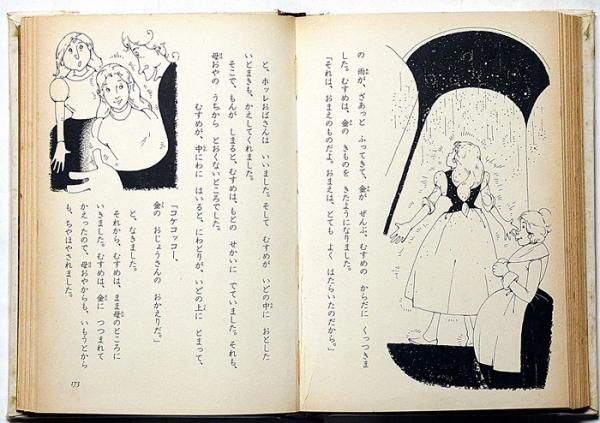 の　雨が、ざあっと　ふってきて、金が　ぜんぶ、むすめの　からだに　くっつきま
した。むすめは、金の　きものを　きたようになりました。
「それは、おまえのものだよ。おまえは、とても　よく　はたらいたのだから。」
と、ホッレおばさんは　いいました。そして　むすめが　いどの中に　おとした
いとまきも、かえしてくれました。
そこで、もんが　しまると、むすめは、もとの　せかいに　でていました。それも、
母おやの　うちから　とおくないところでした。
むすめが、中にわに　はいると、にわとりが、いどの上に　とまって、
「コケコッコー、
金の　おじょうさんの　おかえりだ。」
と、なきました。
それから、むすめは、まま母のところに
いきました。むすめは、金に　つつまれて
かえったので、母おやからも、いもうとから
も、ちやほやされました。
173